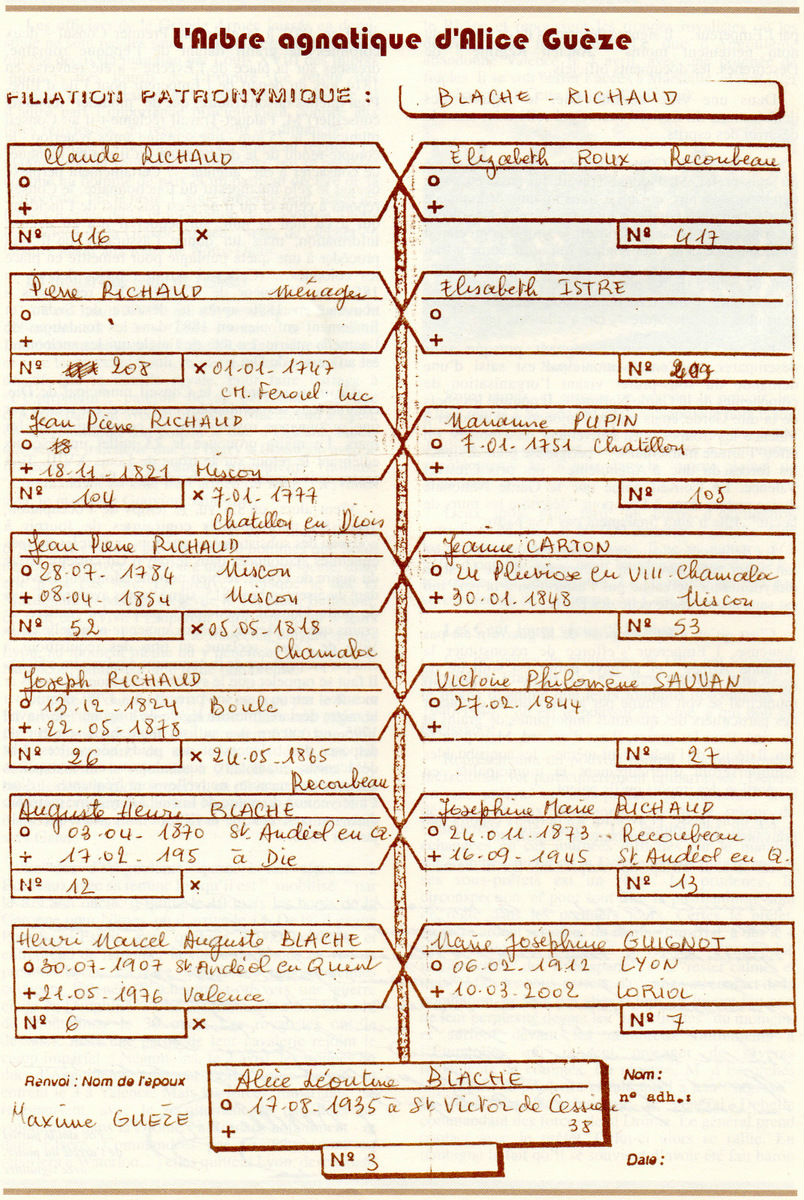 L'Arbre agnatique d'Alice Guèze
FILIATION PATRONYMIQUE :
BLACHE - RICHAUD
Claude RICHAUD
o
+
Nº 416 x
Elizabeth ROUX Recoubeau
o
+
Nº 417
Pierre RICHAUD ménager
o
+
Nº 208 x 01-01-1747
CM. Feroul Luc
Elisabeth ISTRE
o
+
Nº
Jean Pierre RICHAUD
o 18
+ 18-11-1821 Miscon
Nº 104 x 7-01-1777
Chatillon en Diois
Marianne PUPIN
o 7.01.1751 Chatillon
+
Nº 105
Jean Pierre RICHAUD
o 28-07-1784 Miscon
+ 08-04-1854 Miscon
Nº 52 x 05-05-1818
Chamaloc
Jeanne CARTON
o 24 Pluviose en VIII-Chamaloc
+ 30-01-1848 Miscon
Nº 53
Joseph RICHAUD
o 13.12-1824 Boulc
+ 22.05-1878
Nº 26 x 24-05-1865
Recoubeau
Victoire Philomène SAUVAN
o 27.02.1844
+
Nº 27
Auguste Henri BLACHE
o 03-04-1870 St Andéol en Q.
+ 17.02-195 à Die
Nº 12 x
Joséphine Marie RICHAUD
o 24.011-1873-- Recoubeau
+ 16-09-1945 St Andéol en Q.
Nº 13
Henri Marcel Auguste BLACHE
o 30-07-1907 St Andéol en Quint
+ 21.05-1976 Valence
Nº 6 x
Marie Joséphine GUIGNOT
o 06-02-1912 LYON
+ 10-03-2002 LORIOL
Nº 7
Renvoi : Nom de l'époux
Maxime GUEZE
Alice Léontine BLACHE
o 17-08-1935 à St Victor de Cessieu
38
+
Nº 3
Nom :
nº adh. :
Date :